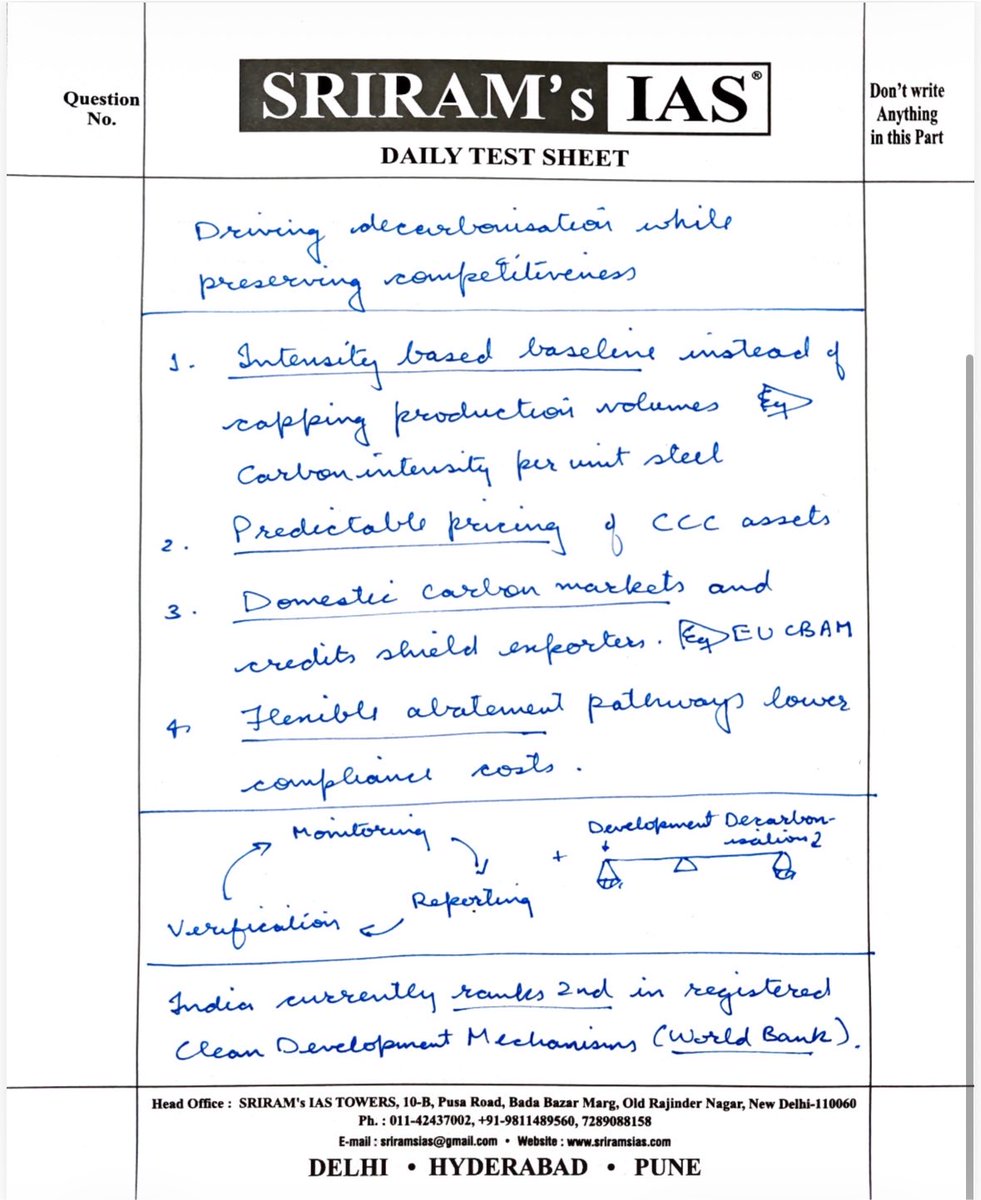 Question
No.
SRIRAM's IAS®
DAILY TEST SHEET
Don't write
Anything
in this Part
Driving decarbonisation while
preserving competitiveness
1. Intensity based baseline instead of
capping production volumes Eg
Carbon intensity per unit steel
2. Predictable pricing of CCC assets
3. Domestic carbon markets and
credits shield exporters. Eg EU CBAM
4. Flexible abatement pathways lower
compliance costs.
Monitoring
Reporting
Verification
+
Development Decarbon-
isation
India currently ranks 2nd in registered
Clean Development Mechanisms (World Bank).
Head Office : SRIRAM's IAS TOWERS, 10-B, Pusa Road, Bada Bazar Marg, Old Rajinder Nagar, New Delhi-110060
Ph. : 011-42437002, +91-9811489560, 7289088158
E-mail : sriramsias@gmail.com • Website : www.sriramsias.com
DELHI • HYDERABAD • PUNE